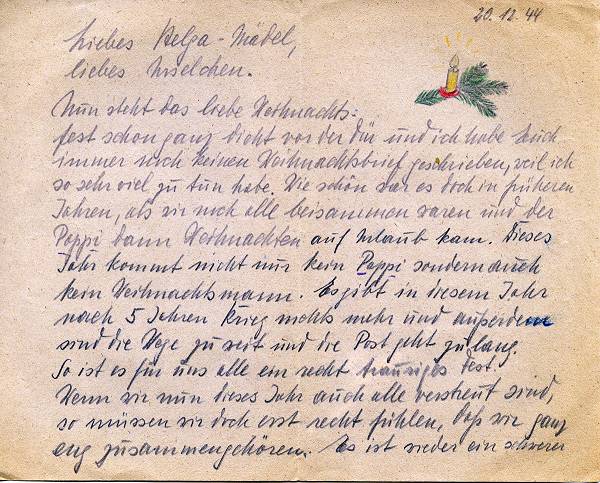 20.12.44
Liebes Helga-Mädel,
liebes Inselchen.
Nun steht das liebe Weihnachts=
fest schon ganz dicht vor der Tür und ich habe Euch
immer noch keinen Weihnachtsbrief geschrieben, weil ich
so sehr viel zu tun habe. Wie schön war es doch in früheren
Jahren, als wir noch alle beisammen waren und der
Pappi dann Weihnachten auf Urlaub kam. Dieses
Jahr kommt nicht nur kein Pappi sondern auch
kein Weihnachtsmann. Es gibt in diesem Jahr
nach 5 Jahren Krieg nichts mehr und außerdem
sind die Wege zu weit und die Post geht zu lang.
So ist es für uns alle ein recht trauriges Fest.
Wenn wir nun dieses Jahr auch alle verstreut sind,
so müssen wir doch erst recht fühlen, daß wir ganz
eng zusammengehören. Es ist wieder ein schwerer